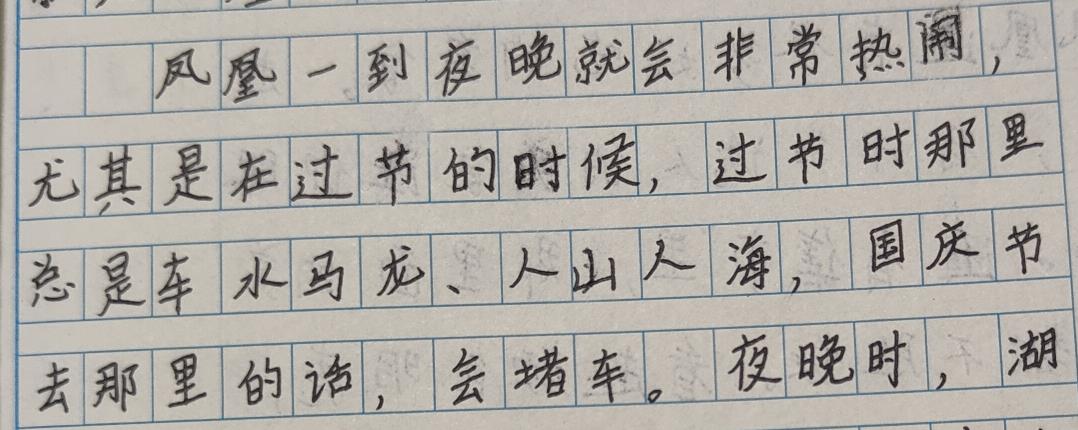 凤凰一到夜晚就会非常热闹，
尤其是在过节的时候，过节时那里
总是车水马龙、人山人海，国庆节
去那里的话，会堵车。夜晚时，湖